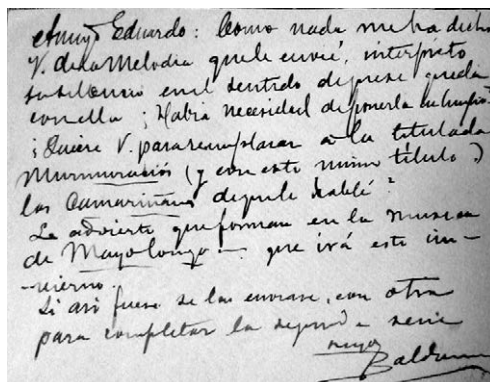 Amigo Eduardo: Como nada me ha dicho
V. de la Melodia que le envié, interpreto
su silencio en el sentido de que se queda
con ella ¿Habrá necesidad de ponerla en limpio?
¿Quiere V. para reemplazar a la titulada
Murmuración (y con este mismo título)
las Camariñas de que le hablé?
Le advierto que forman en la musica
de Mayo longo — que irá este in-
-vierno.
Si asi fuese se las enviase, con otra
para completar la segunda serie
suyo
Baldomir